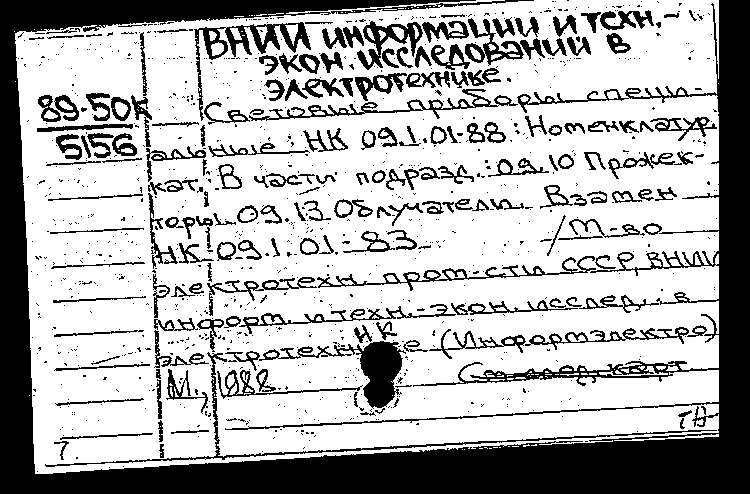 ВНИИ информации и техн.-
экон. исследований в
электротехнике.
89-50К
5156
Световые приборы специ-
альные : НК 09.1.01-88 : Номенклатур.
кат. : В части подразд. : 09.10 Прожек-
торы. 09.13 Облучатели. Взамен
НК 09.1.01-83 / М-во
электротехн. пром-сти СССР, ВНИИ
информ. и техн.-экон. исслед. в
электротехнике (Информэлектро)
НК
М., 1988.
См. след. карт
7.